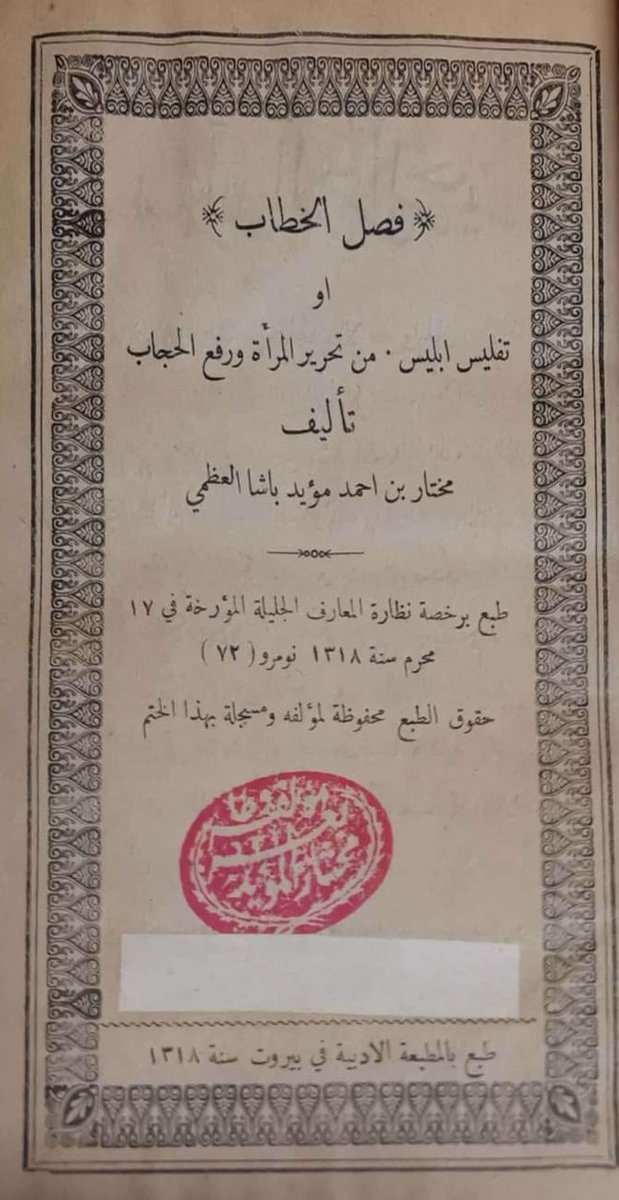 ﴿ فصل الخطاب ﴾
او
تفليس ابليس · من تحرير المرأة ورفع الحجاب
تأليف
مختار بن احمد مؤيد باشا العظمي
طبع برخصة نظارة المعارف الجليلة المؤرخة في ١٧
محرم سنة ١٣١٨ نومرو ( ٧٢ )
حقوق الطبع محفوظة لمؤلفه ومسجلة بهذا الختم
طبع بالمطبعة الادبية في بيروت سنة ١٣١٨